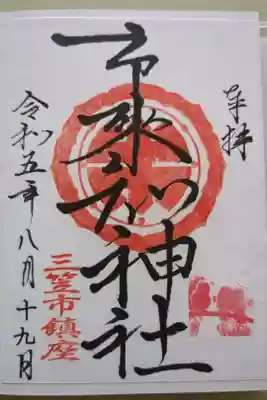 奉拝
市來知神社
三笠市鎮座
令和五年八月十九日